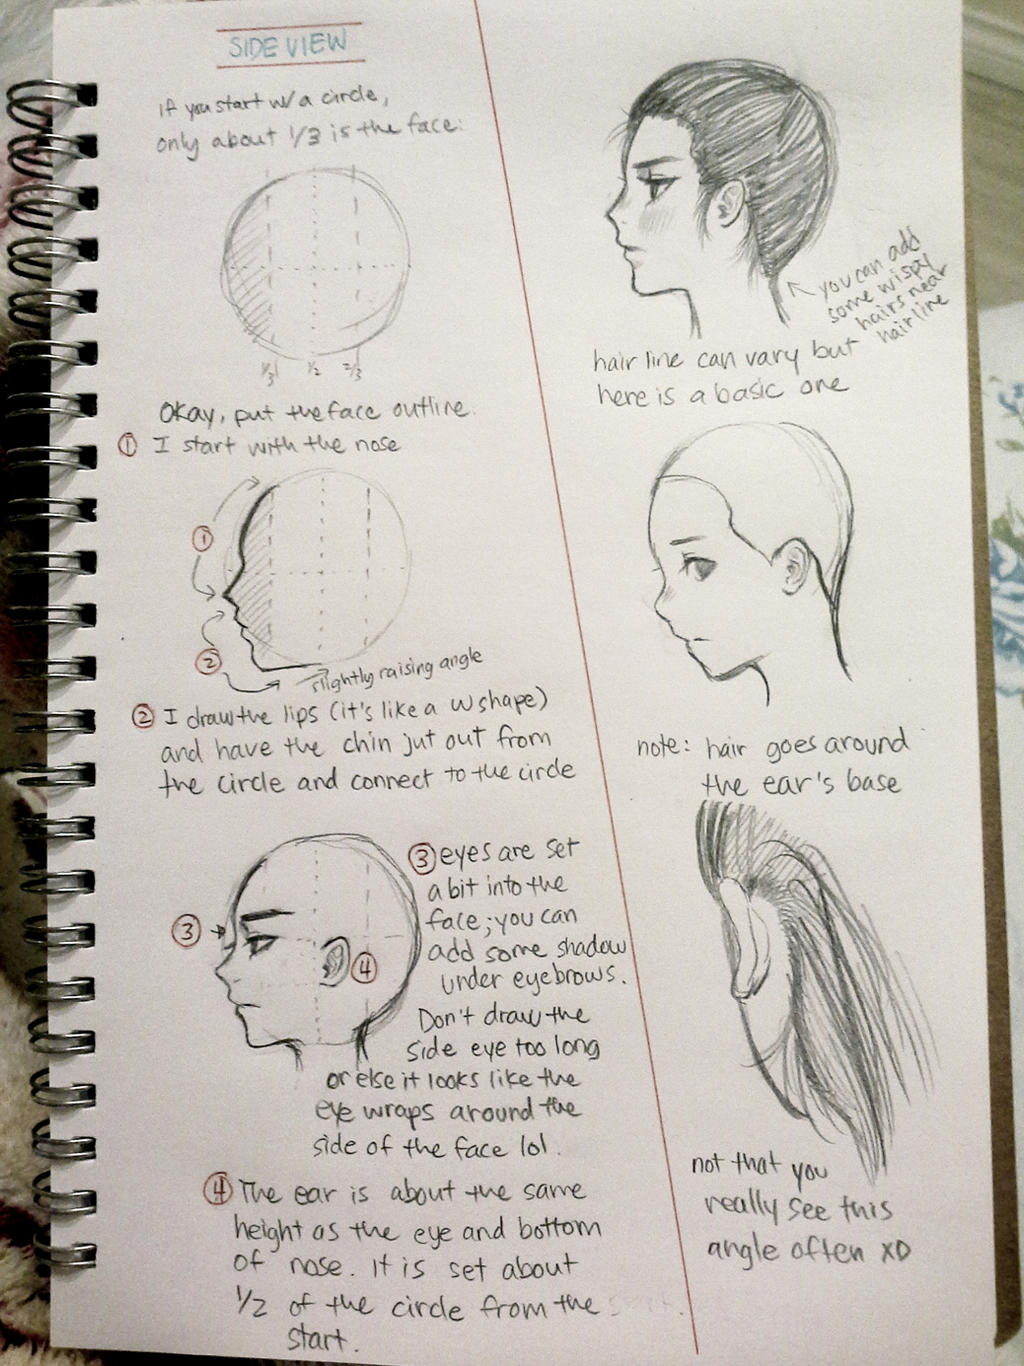 SIDE VIEW
if you start w/ a circle,
only about 1/3 is the face:
1/3 1/2 2/3
Okay, put the face outline.
① I start with the nose
①
②
slightly raising angle
② I draw the lips (it's like a w shape)
and have the chin jut out from
the circle and connect to the circle
③
④
③ eyes are set
a bit into the
face; you can
add some shadow
under eyebrows.
Don't draw the
side eye too long
or else it looks like the
eye wraps around the
side of the face lol.
④ The ear is about the same
height as the eye and bottom
of nose. It is set about
1/2 of the circle from the
start.
you can add
some wispy
hairs near
hairline
hair line can vary but
here is a basic one
note: hair goes around
the ear's base
not that you
really see this
angle often XD